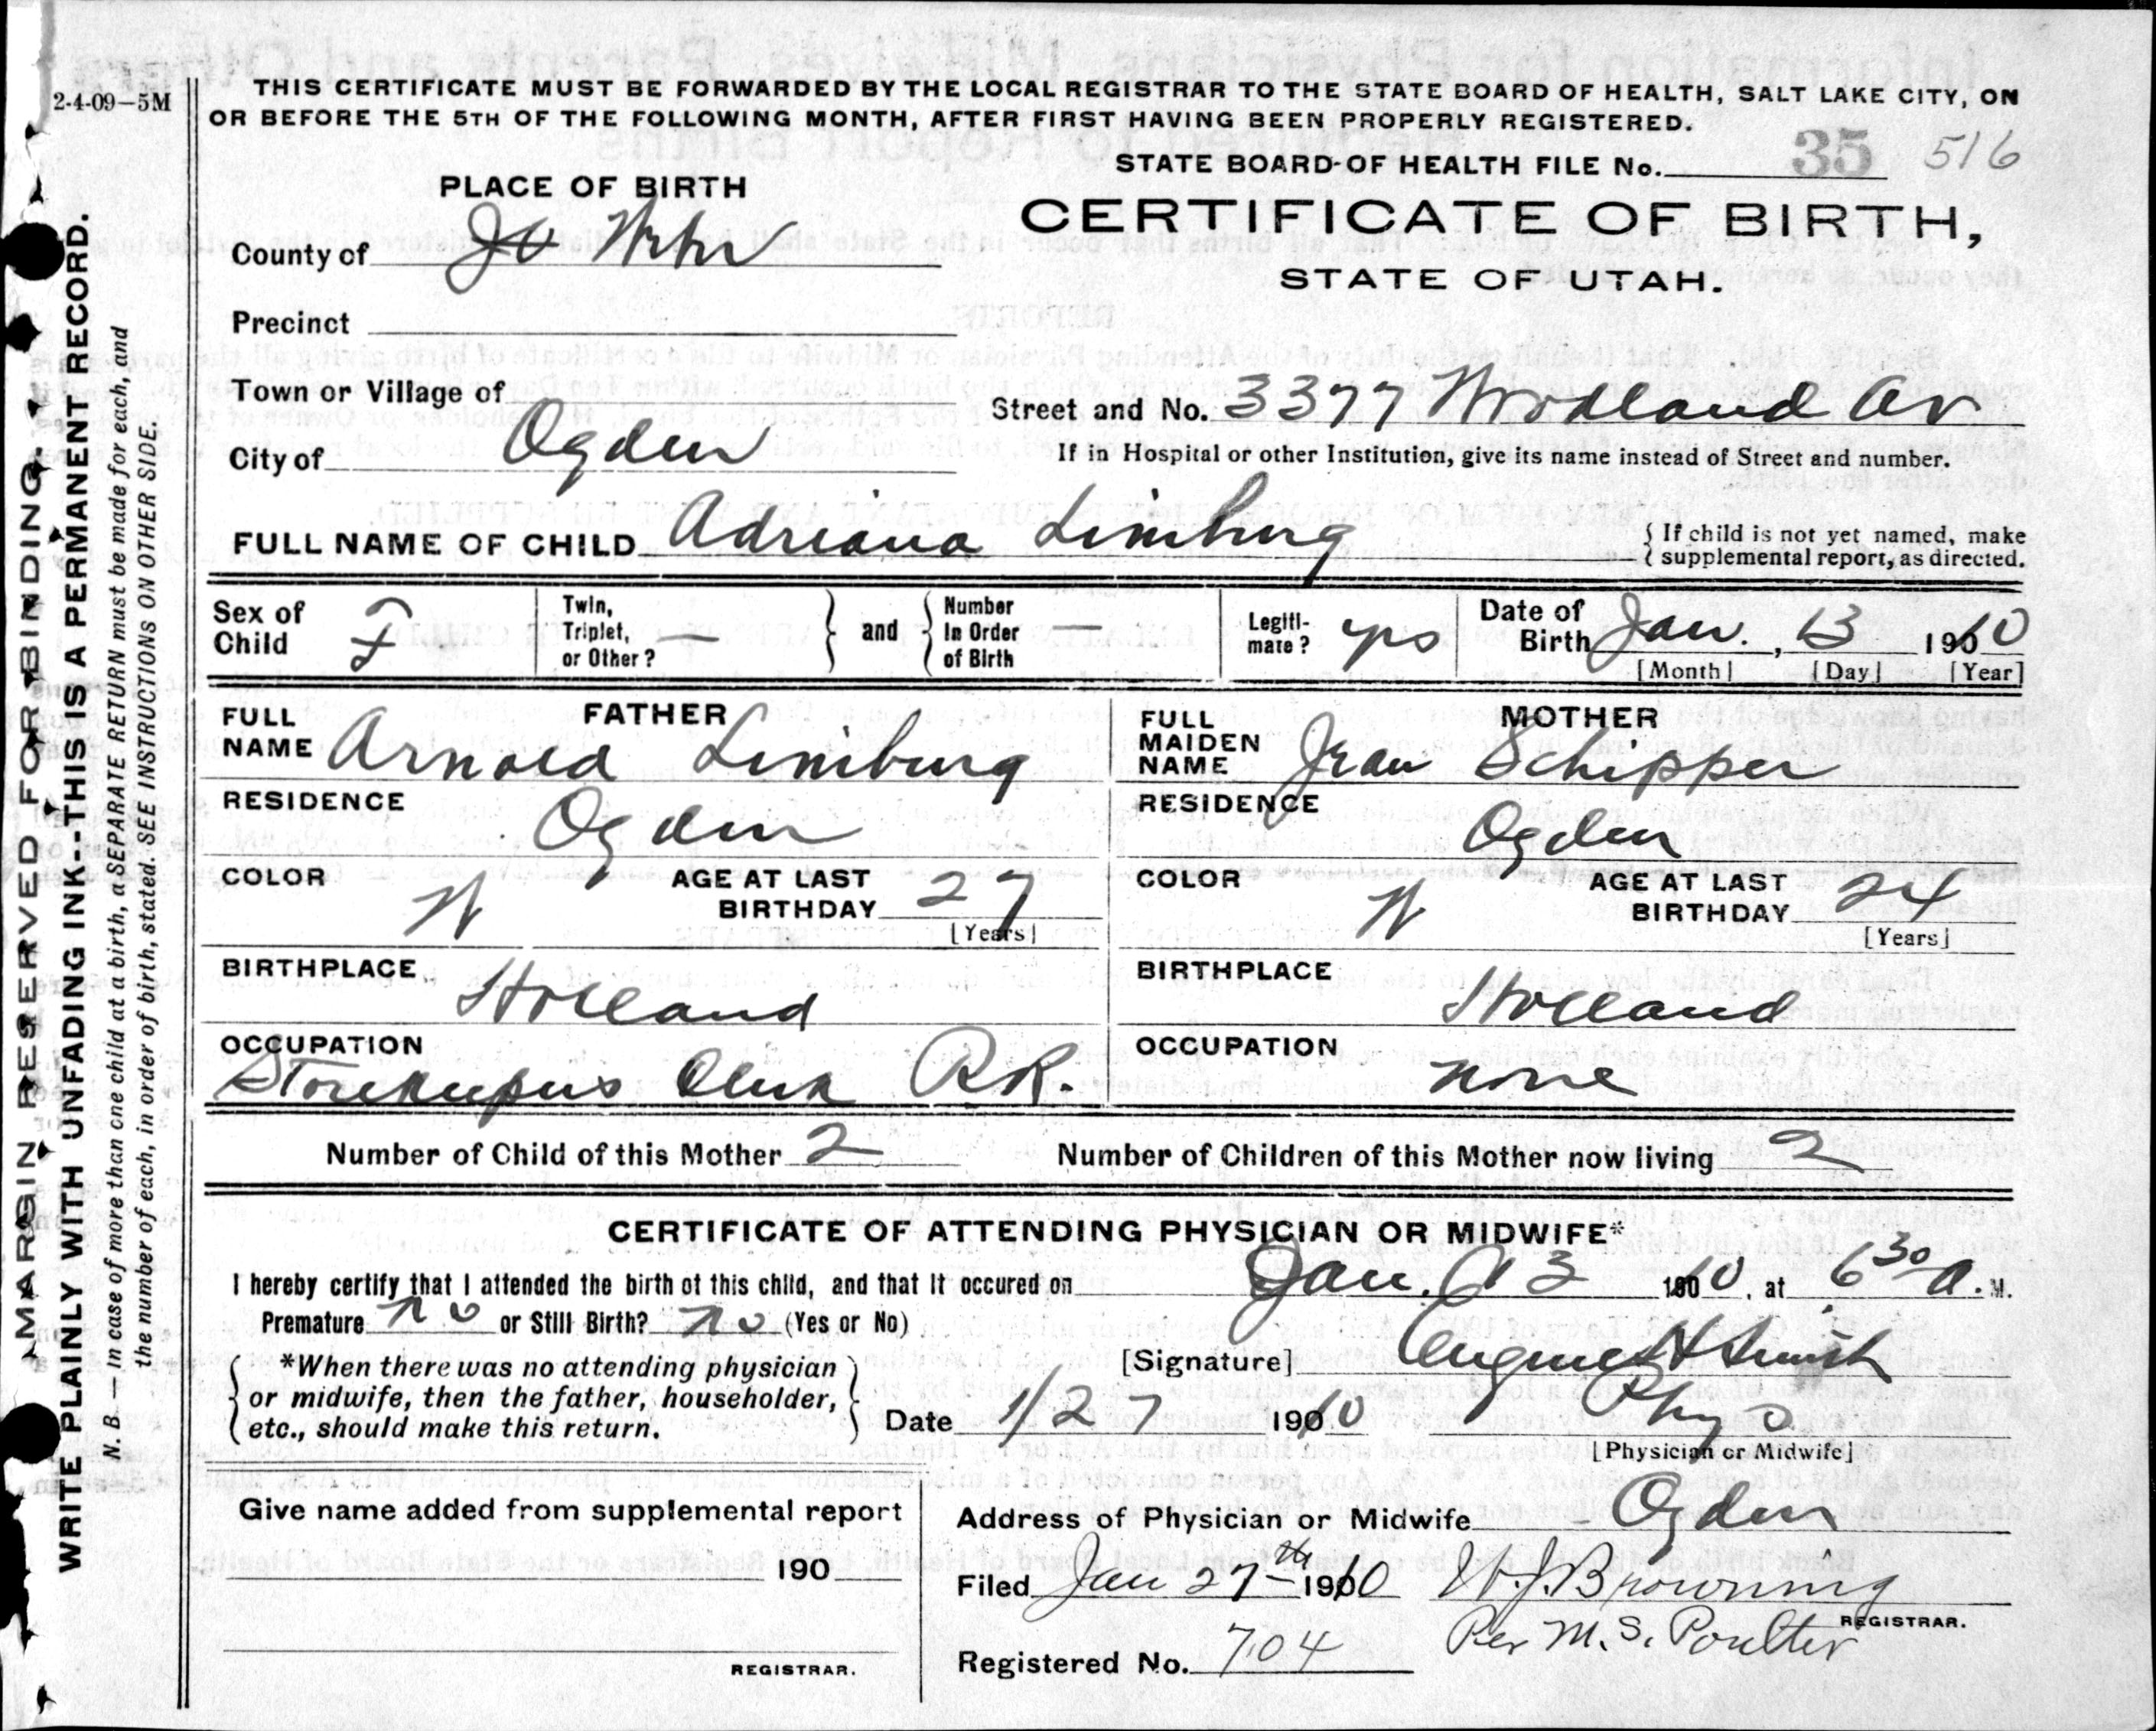 2-4-09-5M
THIS CERTIFICATE MUST BE FORWARDED BY THE LOCAL REGISTRAR TO THE STATE BOARD OF HEALTH, SALT LAKE CITY, ON
OR BEFORE THE 5TH OF THE FOLLOWING MONTH, AFTER FIRST HAVING BEEN PROPERLY REGISTERED.
STATE BOARD OF HEALTH FILE No. 35 516
PLACE OF BIRTH
CERTIFICATE OF BIRTH,
STATE OF UTAH.
County of Weber
Precinct
Town or Village of
Street and No. 3377 Woodland Av
City of Ogden
If in Hospital or other Institution, give its name instead of Street and number.
FULL NAME OF CHILD Adriana Limburg
{ If child is not yet named, make
{ supplemental report, as directed.
Sex of Child F
Twin, Triplet, or Other? —
and
Number In Order of Birth —
Legitimate? yes
Date of Birth Jan. 13, 1910
[Month] [Day] [Year]
FATHER
FULL NAME Arnold Limburg
RESIDENCE Ogden
COLOR W
AGE AT LAST BIRTHDAY 27
[Years]
BIRTHPLACE Holland
OCCUPATION Storekeepers Clerk R.R.
MOTHER
FULL MAIDEN NAME Jean Schipper
RESIDENCE Ogden
COLOR W
AGE AT LAST BIRTHDAY 24
[Years]
BIRTHPLACE Holland
OCCUPATION none
Number of Child of this Mother 2
Number of Children of this Mother now living 2
CERTIFICATE OF ATTENDING PHYSICIAN OR MIDWIFE*
I hereby certify that I attended the birth of this child, and that it occured on Jan. 13 1910, at 6 30 a. M.
Premature no or Still Birth? no (Yes or No)
*When there was no attending physician
or midwife, then the father, householder,
etc., should make this return.
[Signature] Eugene H Smith
Date 1/27 1910
Phys
[Physician or Midwife]
Give name added from supplemental report
190
REGISTRAR.
Address of Physician or Midwife Ogden
Filed Jan 27th 1910 W.J. Browning
REGISTRAR.
Per M. S. Poulter
Registered No. 704
MARGIN RESERVED FOR BINDING.
WRITE PLAINLY WITH UNFADING INK--THIS IS A PERMANENT RECORD.
N. B. — In case of more than one child at a birth, a SEPARATE RETURN must be made for each, and
the number of each, in order of birth, stated. SEE INSTRUCTIONS ON OTHER SIDE.